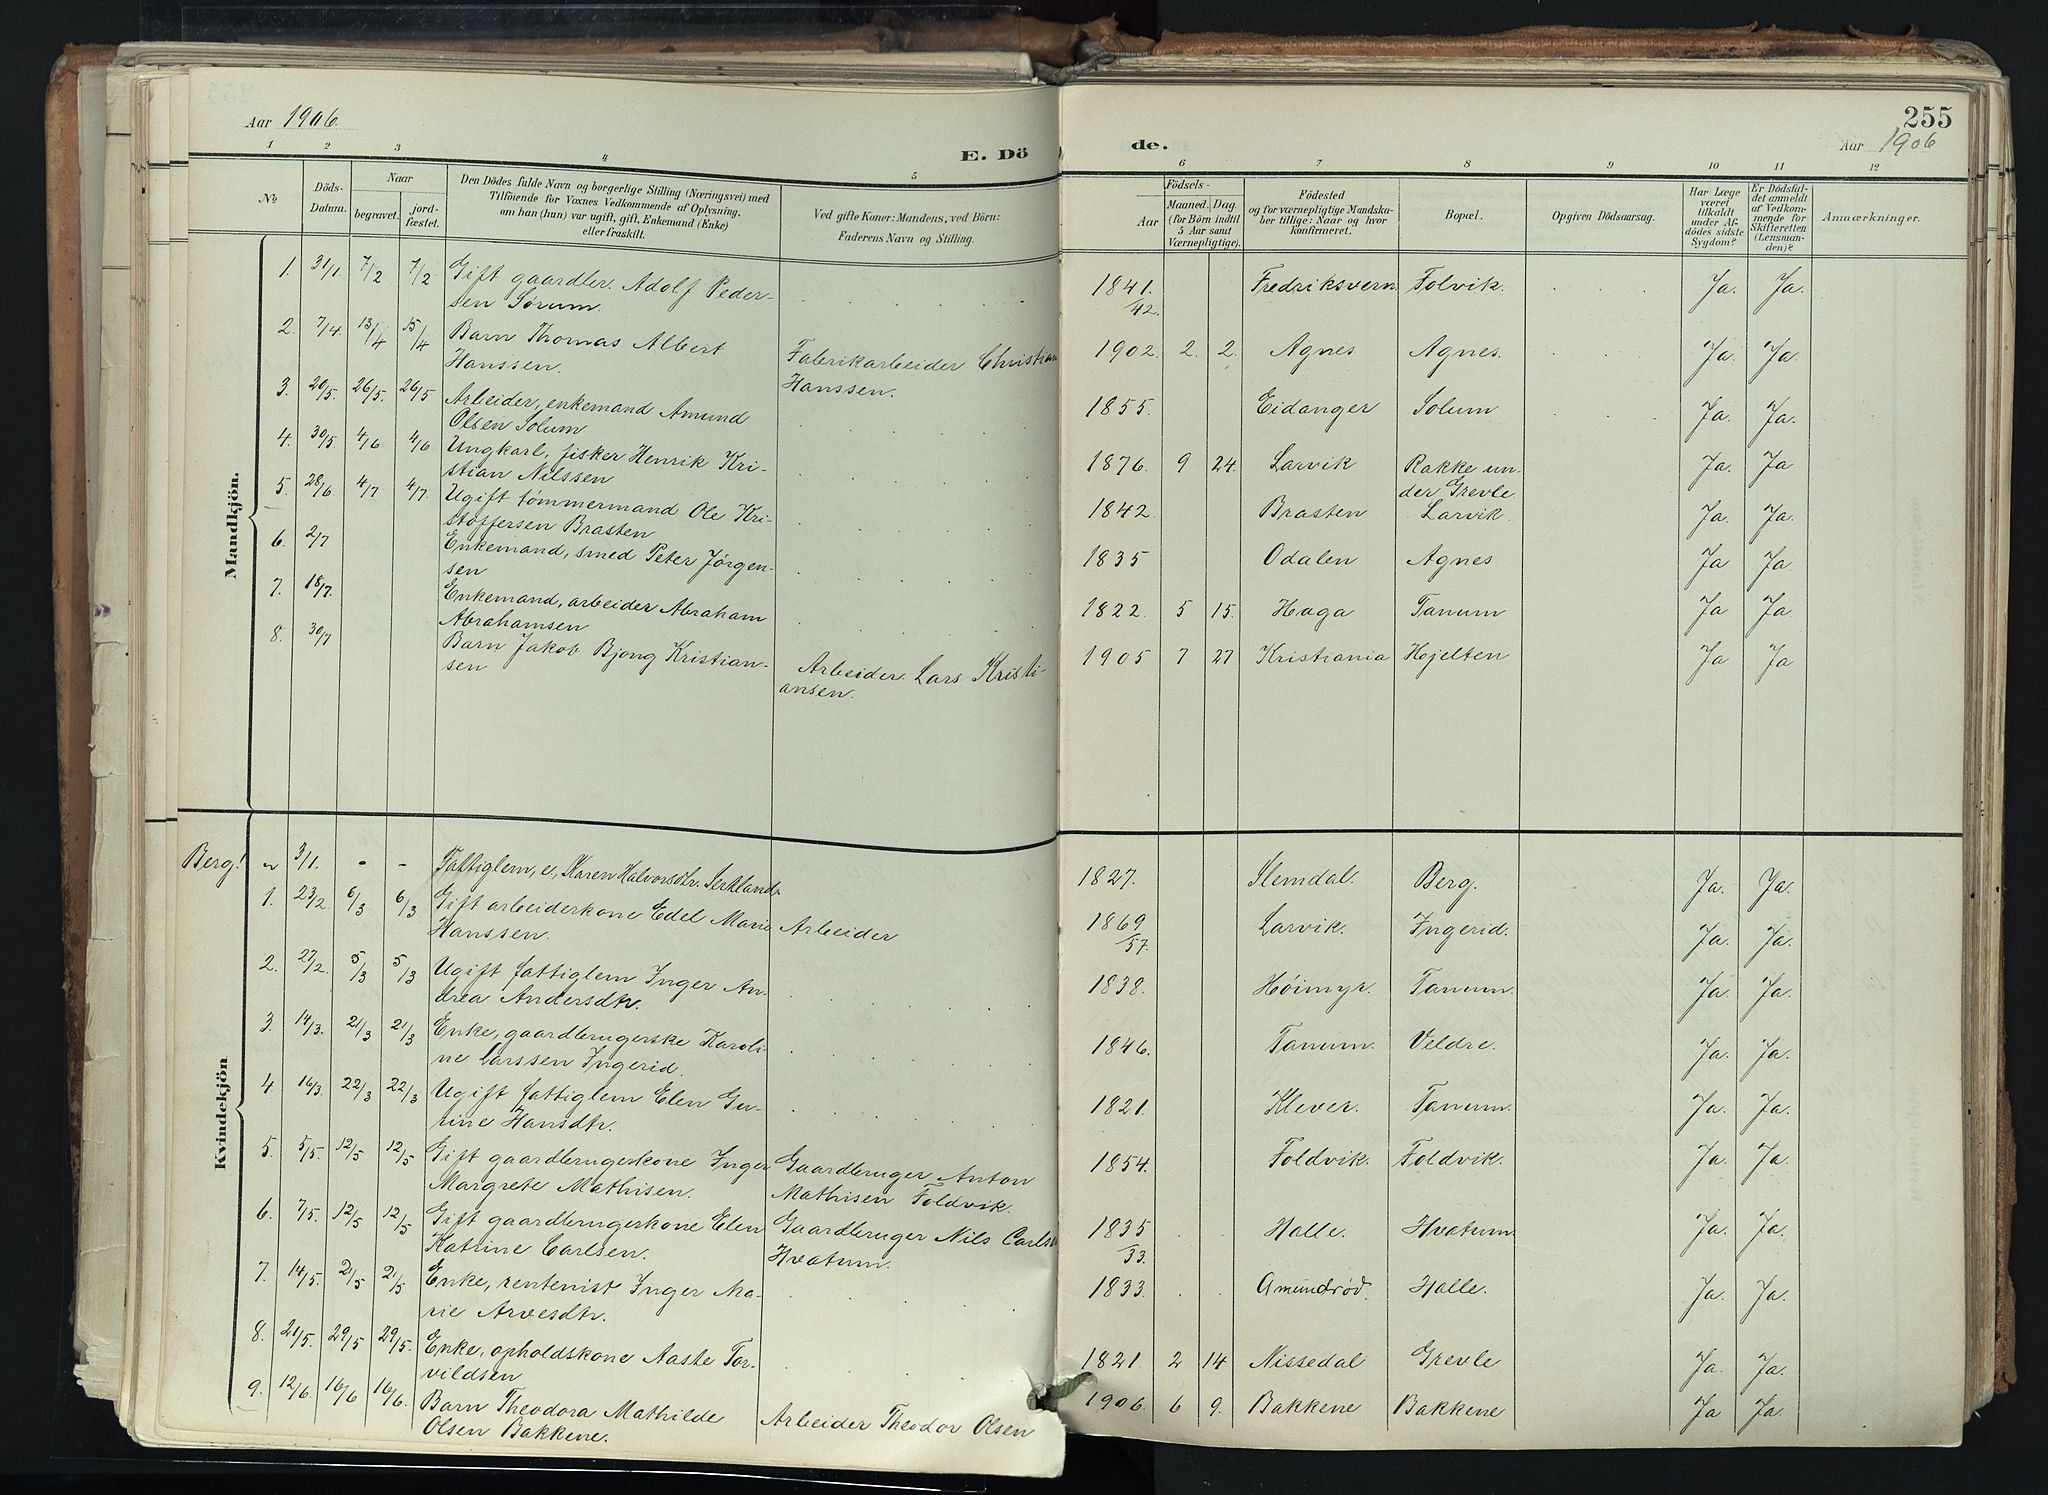 Aar 1906.
E. Dö
de.
255
Aar 1906
1 2 3 4 5 6 7 8 9 10 11 12
No
Döds-Datum.
Naar
begravet.
jord-fæstet.
Den Dödes fulde Navn og borgerlige Stilling (Næringsvei) med
Tilföiende for Voxnes Vedkommende af Oplysning,
om han (hun) var ugift, gift, Enkemand (Enke)
eller fraskilt.
Ved gifte Koner: Mandens, ved Börn:
Faderens Navn og Stilling.
Födsels-
Aar
Maaned. Dag.
(for Börn indtil
5 Aar samt
Værnepligtige).
Födested
og for værnepligtige Mandska-
ber tillige: Naar og hvor
konfirmeret.
Bopæl.
Opgiven Dödsaarsag.
Har Læge
været
tilkaldt
under Af-
dödes sidste
Sygdom?
Er Dödsfal-
det anmeldt
af Vedkom-
mende for
Skifteretten
(Lensman-
den)?
Anmærkninger.
Mandkjön.
1. 31/1 7/2 7/2 Gift gaardbr. Adolf Peder-
sen Sørum.
1841./42. Fredriksvern Folvik. Ja. Ja.
2. 7/4. 13/4 15/4 Barn Thomas Albert
Hanssen.
Fabrikarbeider Christian
Hanssen.
1902. 2. 2. Agnes Agnes. Ja. Ja
3. 20/5. 26/5. 26/5 Arbeider, enkemand Amund
Olsen Solum
1855. Eidanger Solum Ja. Ja.
4. 30/5 4/6 4/6 Ungkarl, fisker Henrik Kri-
stian Nilssen
1876. 9 24. Larvik Rakke un-
der Grevle.
Ja. Ja
5. 28/6 4/7 4/7. Ugift tømmermand Ole Kri-
stoffersen Brasten
1842. Brasten Larvik. Ja. Ja.
6. 2/7 Enkemand, smed Peter Jørgen-
sen
1835 Odalen Agnes Ja Ja.
7. 18/7. Enkemand, arbeider Abraham
Abrahamsen
1822 5 15. Haga Tanum Ja Ja
8. 30/7 Barn Jakob Bjong Kristian-
sen
Arbeider. Lars Kristi-
ansen.
1905 7 27 Kristiania Hjelten Ja Ja
Kvindekjön
Berg! 3/1. - - Fattiglem, e, Karen Halvorsdtr. Serkland.
1827. Slemdal. Berg. Ja. Ja.
1. 23/2 6/3 6/3 Gift arbeiderkone Edel Marie
Hanssen.
Arbeider
1869/57. Larvik. Ingerid. Ja. Ja.
2. 27/2. 5/3 5/3 Ugift fattiglem Inger An-
drea Andersdtr.
1838. Høimyr. Tanum. Ja. Ja.
3. 14/3. 21/3 21/3 Enke, gaardbrugerske Karoli-
ne Larssen Ingerid.
1846. Tanum. Veldre. Ja. Ja.
4. 16/3. 22/3 22/3 Ugift fattiglem Elen Gu-
rine Hansdtr.
1821. Klever. Tanum. Ja. Ja.
5. 5/5. 12/5 12/5 Gift gaardbrugerkone Inger
Margrete Mathisen.
Gaardbruger Anton
Mathisen Foldvik.
1854. Foldvik. Foldvik. Ja. Ja.
6. 7/5. 12/5 12/5 Gift gaardbrugerkone Elen
Katrine Carlsen.
Gaardbruger Nils Carlsen
Hvatum.
1835/33. Halle. Hvatum. Ja. Ja.
7. 14/5. 21/5 21/5 Enke, rentenist Inger Ma-
rie Arvesdtr.
1833. Amundrød. Halle. Ja. Ja.
8. 21/5. 29/5 29/5. Enke, opholdskone Aaste Tor-
vildsen
1821. 2 14 Nissedal Grevle Ja. Ja.
9. 12/6. 16/6 16/6. Barn Theodora Mathilde
Olsen Bakkene.
Arbeider Theodor Olsen
1906. 6 9. Bakkene Bakkene Ja Ja.